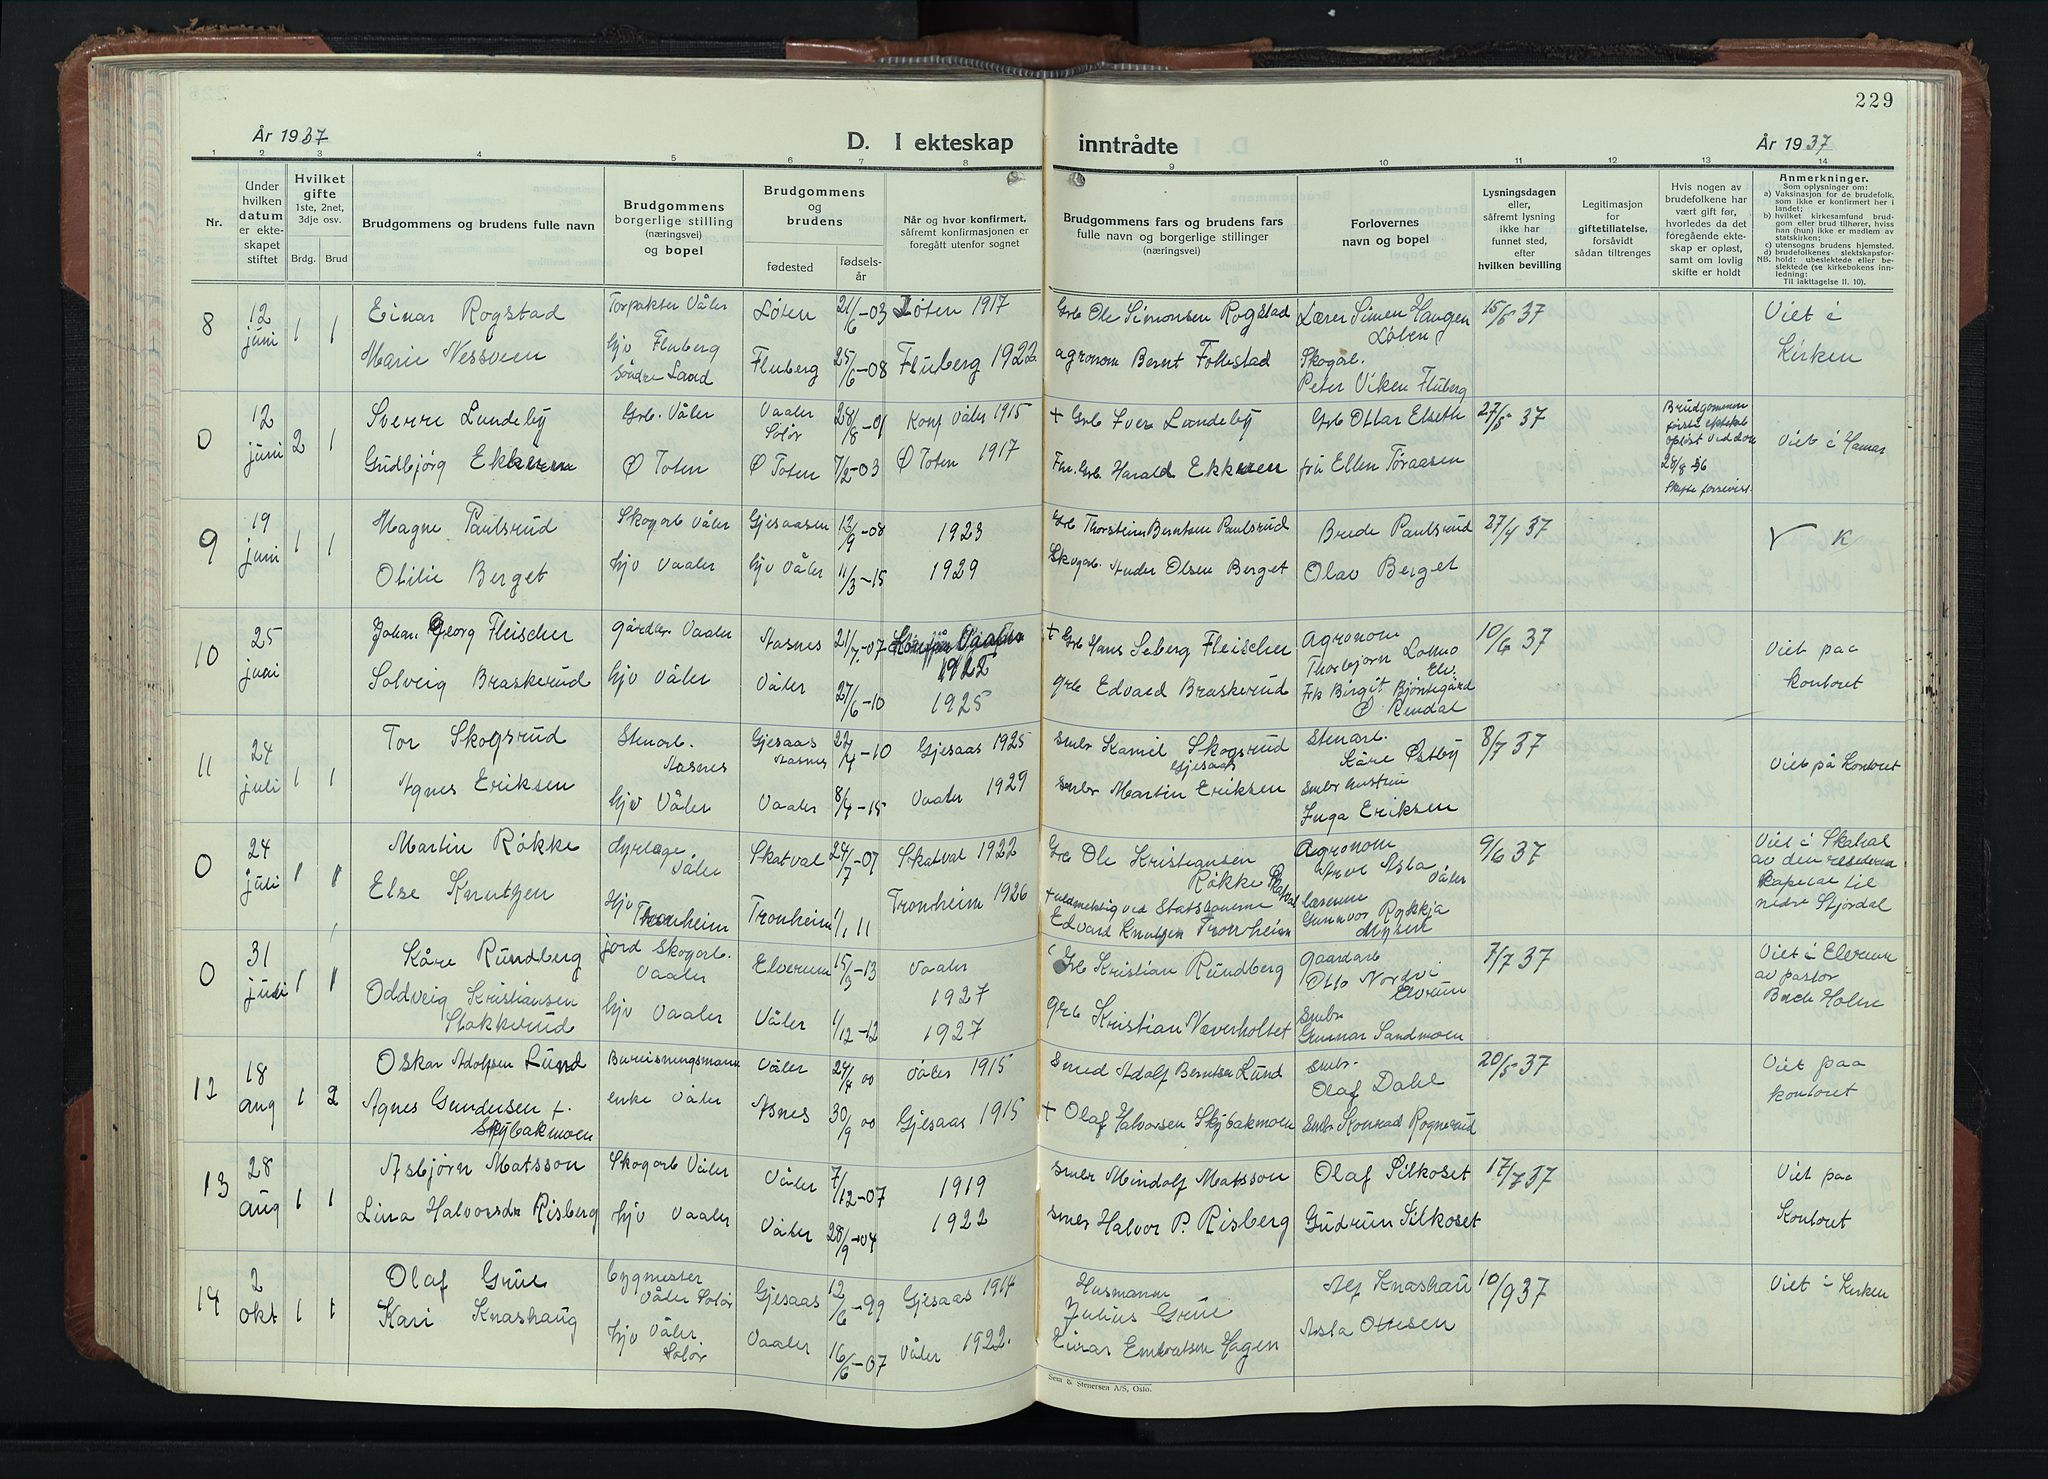 229
År 1937
D. I ekteskap inntrådte
År 1937
1 2 3 4 5 6 7 8 9 10 11 12 13 14
Nr.
Under hvilken datum er ekteskapet stiftet
Hvilket gifte
1ste, 2net, 3dje osv.
Brdg. Brud
Brudgommens og brudens fulle navn
Brudgommens borgerlige stilling (næringsvei) og bopel
Brudgommens og brudens
fødested
fødselsår
Når og hvor konfirmert, såfremt konfirmasjonen er foregått utenfor sognet
Brudgommens fars og brudens fars fulle navn og borgerlige stillinger (næringsvei)
Forlovernes navn og bopel
Lysningsdagen eller, såfremt lysning ikke har funnet sted, efter hvilken bevilling
Legitimasjon for giftetillatelse, forsåvidt sådan tiltrenges
Hvis nogen av brudefolkene har vært gift før, hvorledes da det foregående ekteskap er opløst, samt om lovlig skifte er holdt
Anmerkninger.
Som oplysninger om:
a) Vaksinasjon for de brudefolk, som ikke er konfirmert her i landet;
b) hvilket kirkesamfund brudgom eller brud tilhører, hviss han (hun) ikke er medlem av statskirken;
c) utensogns brudens hjemsted.
d) brudefolkenes slektskapsforhold: ubeslektede eller beslektede (se kirkebokens innledning:
NB. Til iakttagelse II. 10).
8 12 juni 1 1
Einar Rogstad
Torpakter Våler
Løten 21/6-03 Løten 1917
Grb Ole Simonsen Rogstad
Lærer Simen Haugen Løten
15/5 37
Viet i Kirken
Marie Nessveen
hjv Fluberg Søndre Land
Fluberg 25/6-08 Fluberg 1922
agronom Bernt Follestad
Skogarb. Peter Viken Fluberg
0 12 juni 2 1
Sverre Lundeby
Grb. Våler
Vaaler Solør 28/8-01 Konf Våler 1915
+ Grb Iver Lundeby
Grb Ottar Elseth
27/5 37
Brudgommen første ekteskab opløst ved død 28/8-36
Viet i Hamar
Gudbjörg Ekkeren
Ø Toten Ø Toten 7/2-03 Ø Toten 1917
Harald Ekkeren
fru Ellen Toraasen
9 19 juni 1 1
Magne Paulsrud
Skogarb Våler
Gjesaasen 13/9-08 1923
Grb Thorstein Berntsen Paulsrud
Paulsrud
27/4 37
V K
Otilie Berget
hjv Vaaler
hjv Våler 11/3-15 1929
Skogarb. Olsen Berget
Olav Berget
10 25 juni
Johan Georg Fleischer
gårdbr Vaaler
Aasnes 21/7-07
1922
+ Grb Hans Seberg Fleischer
Agronom Thorbjørn Lomo Elv.
10/6 37
Viet paa kontoret
Solveig Braskerud
hjv Våler
Våler 27/6-10 1925
grb Edvard Braskerud
Frk Birgit Bjøntegård Ø Rendal
11 24 juli 1 1
Tor Skogsrud
Stenarb. Aasnes
Gjesaas Aasnes 22/4-10 Gjesaas 1925
smbr Kamil Skogsrud Gjesaas
Stenarb. Kåre Østby
8/7 37
Viet på Kontoret
Agnes Eriksen
hjv Våler
Vaaler 8/4-15 Vaaler 1929
smbr Martin Eriksen
smbr hustru Inga Eriksen
0 24 juli 1 1
Martin Røkke
Våler
Skatval 24/7-07 Skatval 1922
Grb Ole Kristiansen Røkke Skatval
Agronom Arve Asla Våler
9/6 37
Viet i Skatval av den residerende kapelan til nedre Stjørdal
Else Knutzen
Hjv Tronheim
Tronheim 1/1 11 Tronheim 1926
ved Statsbanerne Edvard Knutzen Tronheim
Gunnvor Røkkja Mysen
0 31 juli 1 1
Kåre Rundberg
jord Skogarb. Vaaler
Elverum 15/3-13 Vaaler 1927
Grb Kristian Rundberg
gaardarb Otto Nordvi Elverum
7/7 37
Viet i Elverum av pastor Holne
Oddveig Kristiansen Stokkerud
hjv Vaaler
Våler 1/12-12 1927
grb Kristian Næverholtet
smbr Gunnar Sandmoen
12 18 aug 1 2
Oskar Adolfsen Lund
Bureisningsmann
Våler 24/4 00 Våler 1915
Smed Adolf Berntsen Lund
smbr. Olaf Dahl
20/5 37
Viet paa kontoret
Agnes Gundersen f. Skybakmoen
enke Våler
Asnes 30/9 00 Gjesaas 1915
+ Olaf Halvorsen Skybakmoen
smbr Konrad Rognerud
13 28 aug 1 1
Asbjørn Matsson
Skogarb Våler
Våler 7/12-07 1919
smbr Mindolf Matsson
Olaf Silkoset
17/7 37
Viet paa Kontoret
Lina Halvorsdr Risberg
hjv Vaaler
Våler 28/9-04 1922
smbr Halvor P. Risberg
Gudrun Silkoset
14 2 okt 1 1
Olaf Grue
bygmester Våler Solør
Gjesaas 12/6-99 Gjesaas 1914
Husmann Julius Grue
Alf Knashau
10/9 37
Viet i Kirken
Kari Knashaug
hjv Våler. Solør
Vaaler 16/6-07 Våler 1922.
Einar Embretsen Hagen
Asla Ottesen
Sem & Stenersen A/S, Oslo.